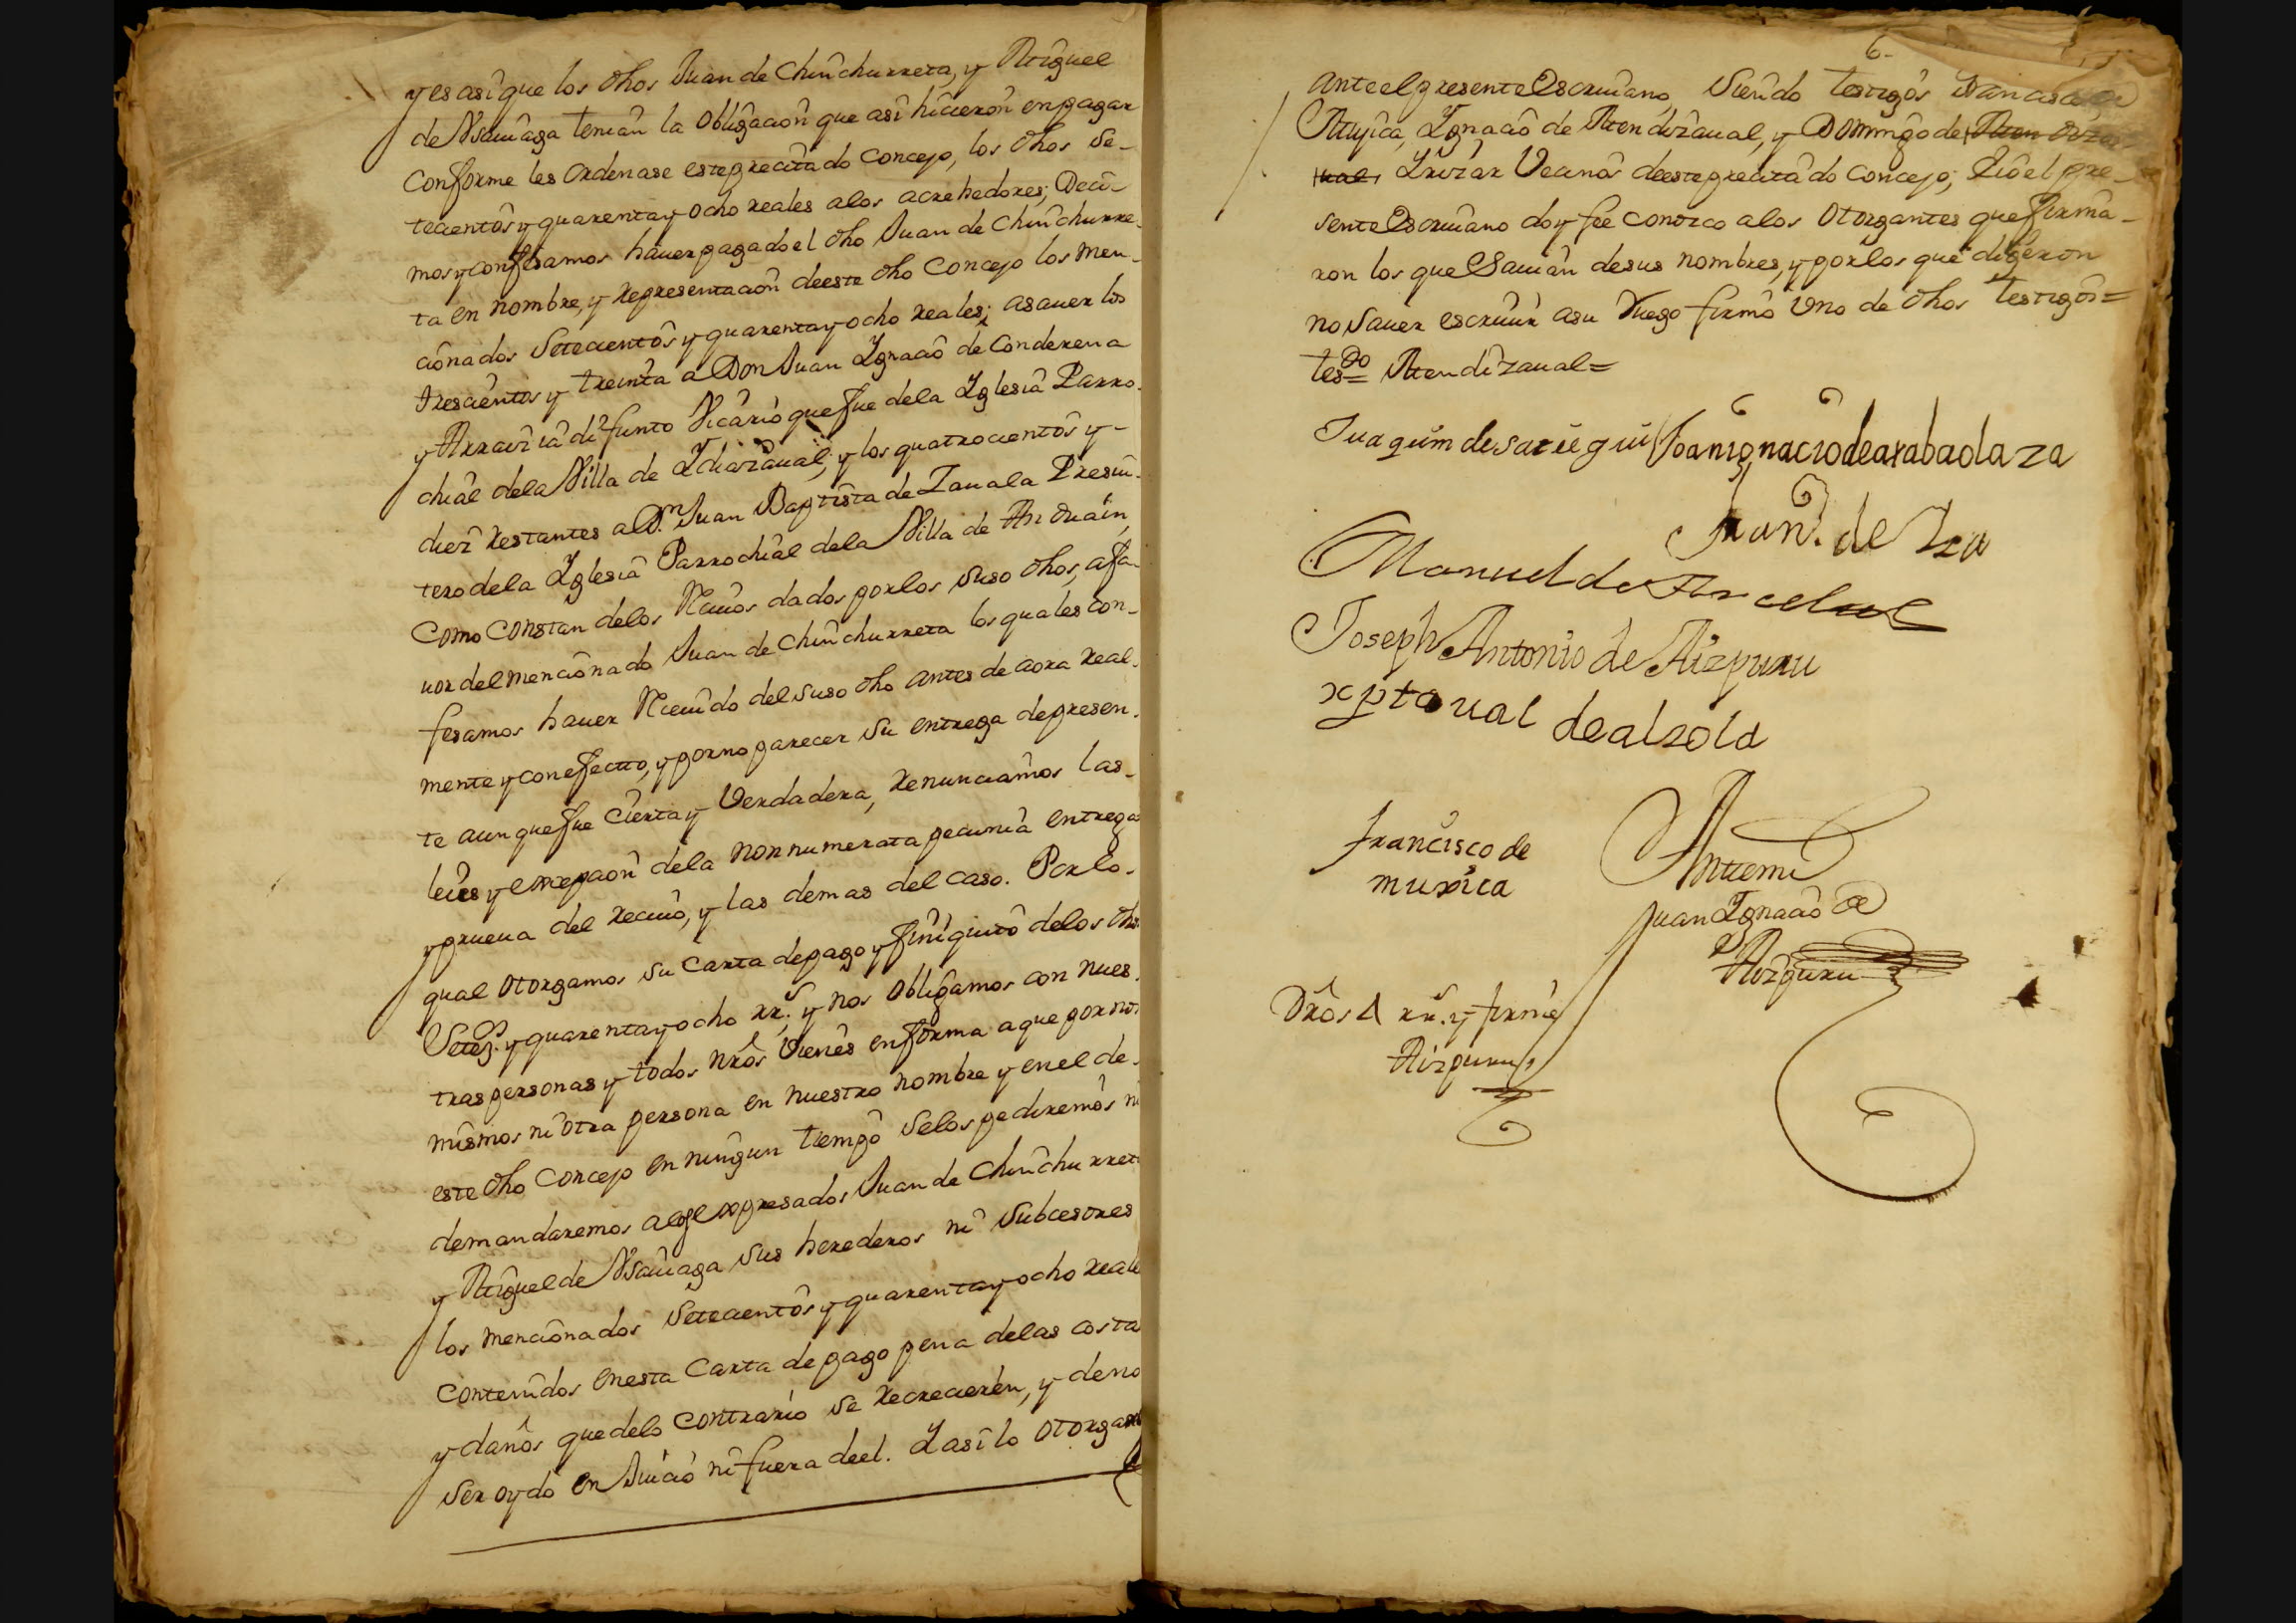 y es asi que los dhos Juan de Chinchurreta, y Miguel
de Vsauiaga tenian la obligacion que asi hicieron en pagar
conforme les ordenase este precitado concejo, los dhos Se-
tecientos y quarenta y ocho reales a los acrehedores; Deci-
mos y confesamos hauer pagado el dho Juan de Chinchurre-
ta en nombre, y representacion de este dho Concejo los men-
cionados Setecientos y quarenta y ocho reales; a sauer los
trescientos y treinta a Don Juan Ygnacio de Conderena
y Arrauizia difunto Vicario que fue de la Yglesia Parro-
chial de la Villa de Ydiazaual; y los quatrocientos y-
diez restantes a Dn. Juan Baptista de Zauala Presui-
tero de la Yglesia Parrochial de la Villa de Anduain,
como constan de los Reciuos dados por los suso dhos, a fa-
uor del mencionado Juan de Chinchurreta los quales con-
fesamos hauer Reciuido del suso dho antes de aora real-
mente y con efectto, y por no parecer su entrega de presen-
te aunque fue cierta y Verdadera, renunciamos las-
leies y excepcion de la non numerata pecunia entrega
y prueua del reciuo, y las demas del caso. Por lo-
qual otorgamos su Carta de pago y finiquito de los dhos
Setezos. y quarenta y ocho rrs. y nos obligamos con nues-
tras personas y todos nros vienes en forma a que por nos
mismos ni otra persona en nuestro nombre y en el de-
este dho Concejo en ningun tiempo se los pediremos ni
demandaremos a los expresados Juan de Chinchurreta
y Miguel de Vsauiaga sus herederos ni Subcesores
los mencionados Setecientos y quarenta y ocho reales
contenidos en esta Carta de pago pena de las costas
y daños que de lo contrario se recrecieren, y de no
ser oydo en Juicio ni fuera de el. Y asi lo otorgamos
6-
ante el presente Escriuano, Siendo testigos Francisco de
Mujica, Ygnacio de Mendizaual, y Domingo de Mendiza-
ual, Yrizar Vecinos de este precitado concejo; E io el pre-
sente Escriuano doy fee conozco a los otorgantes que firma-
ron los que Sauian de sus nombres, y por los que digeron
no Sauer escriuir a su Ruego firmo Uno de dhos testigos=
tesdo= Mendizaual=
Juaquim de sarcegui Joan ignacio de arabaolaza
Juan. de Yza
Manuel de
Joseph Antonio de Aizpuru
xptoual de alzola
francisco de
muxica
Antemi
Juan Ygnacio de
Aizpuru
Dros 4 rrs. y firme
Aizpuru